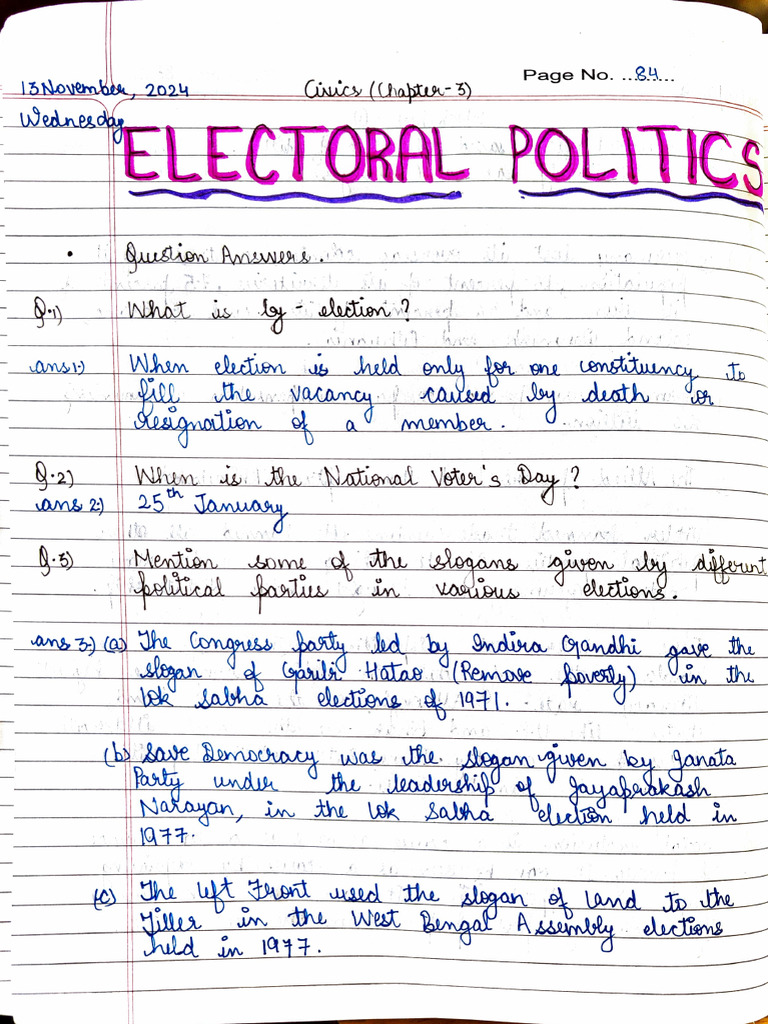 Page No. ..84...
13 November, 2024 Civics (Chapter-3)
Wednesday
ELECTORAL POLITICS
• Question Answers.
Q.1) What is by-election?
ans 1.) When election is held only for one constituency to
fill the vacancy caused by death or
resignation of a member.
Q.2) When is the National Voter's Day?
ans 2.) 25th January
Q.3) Mention some of the slogans given by different
political parties in various elections.
ans 3.) (a) The Congress party led by Indira Gandhi gave the
slogan of Garibi Hatao (Remove poverty) in the
Lok Sabha elections of 1971.
(b) Save Democracy was the slogan given by Janata
Party under the leadership of Jayaprakash
Narayan, in the Lok Sabha election held in
1977.
(c) The Left Front used the slogan of Land to the
Tiller in the West Bengal Assembly elections
held in 1977.